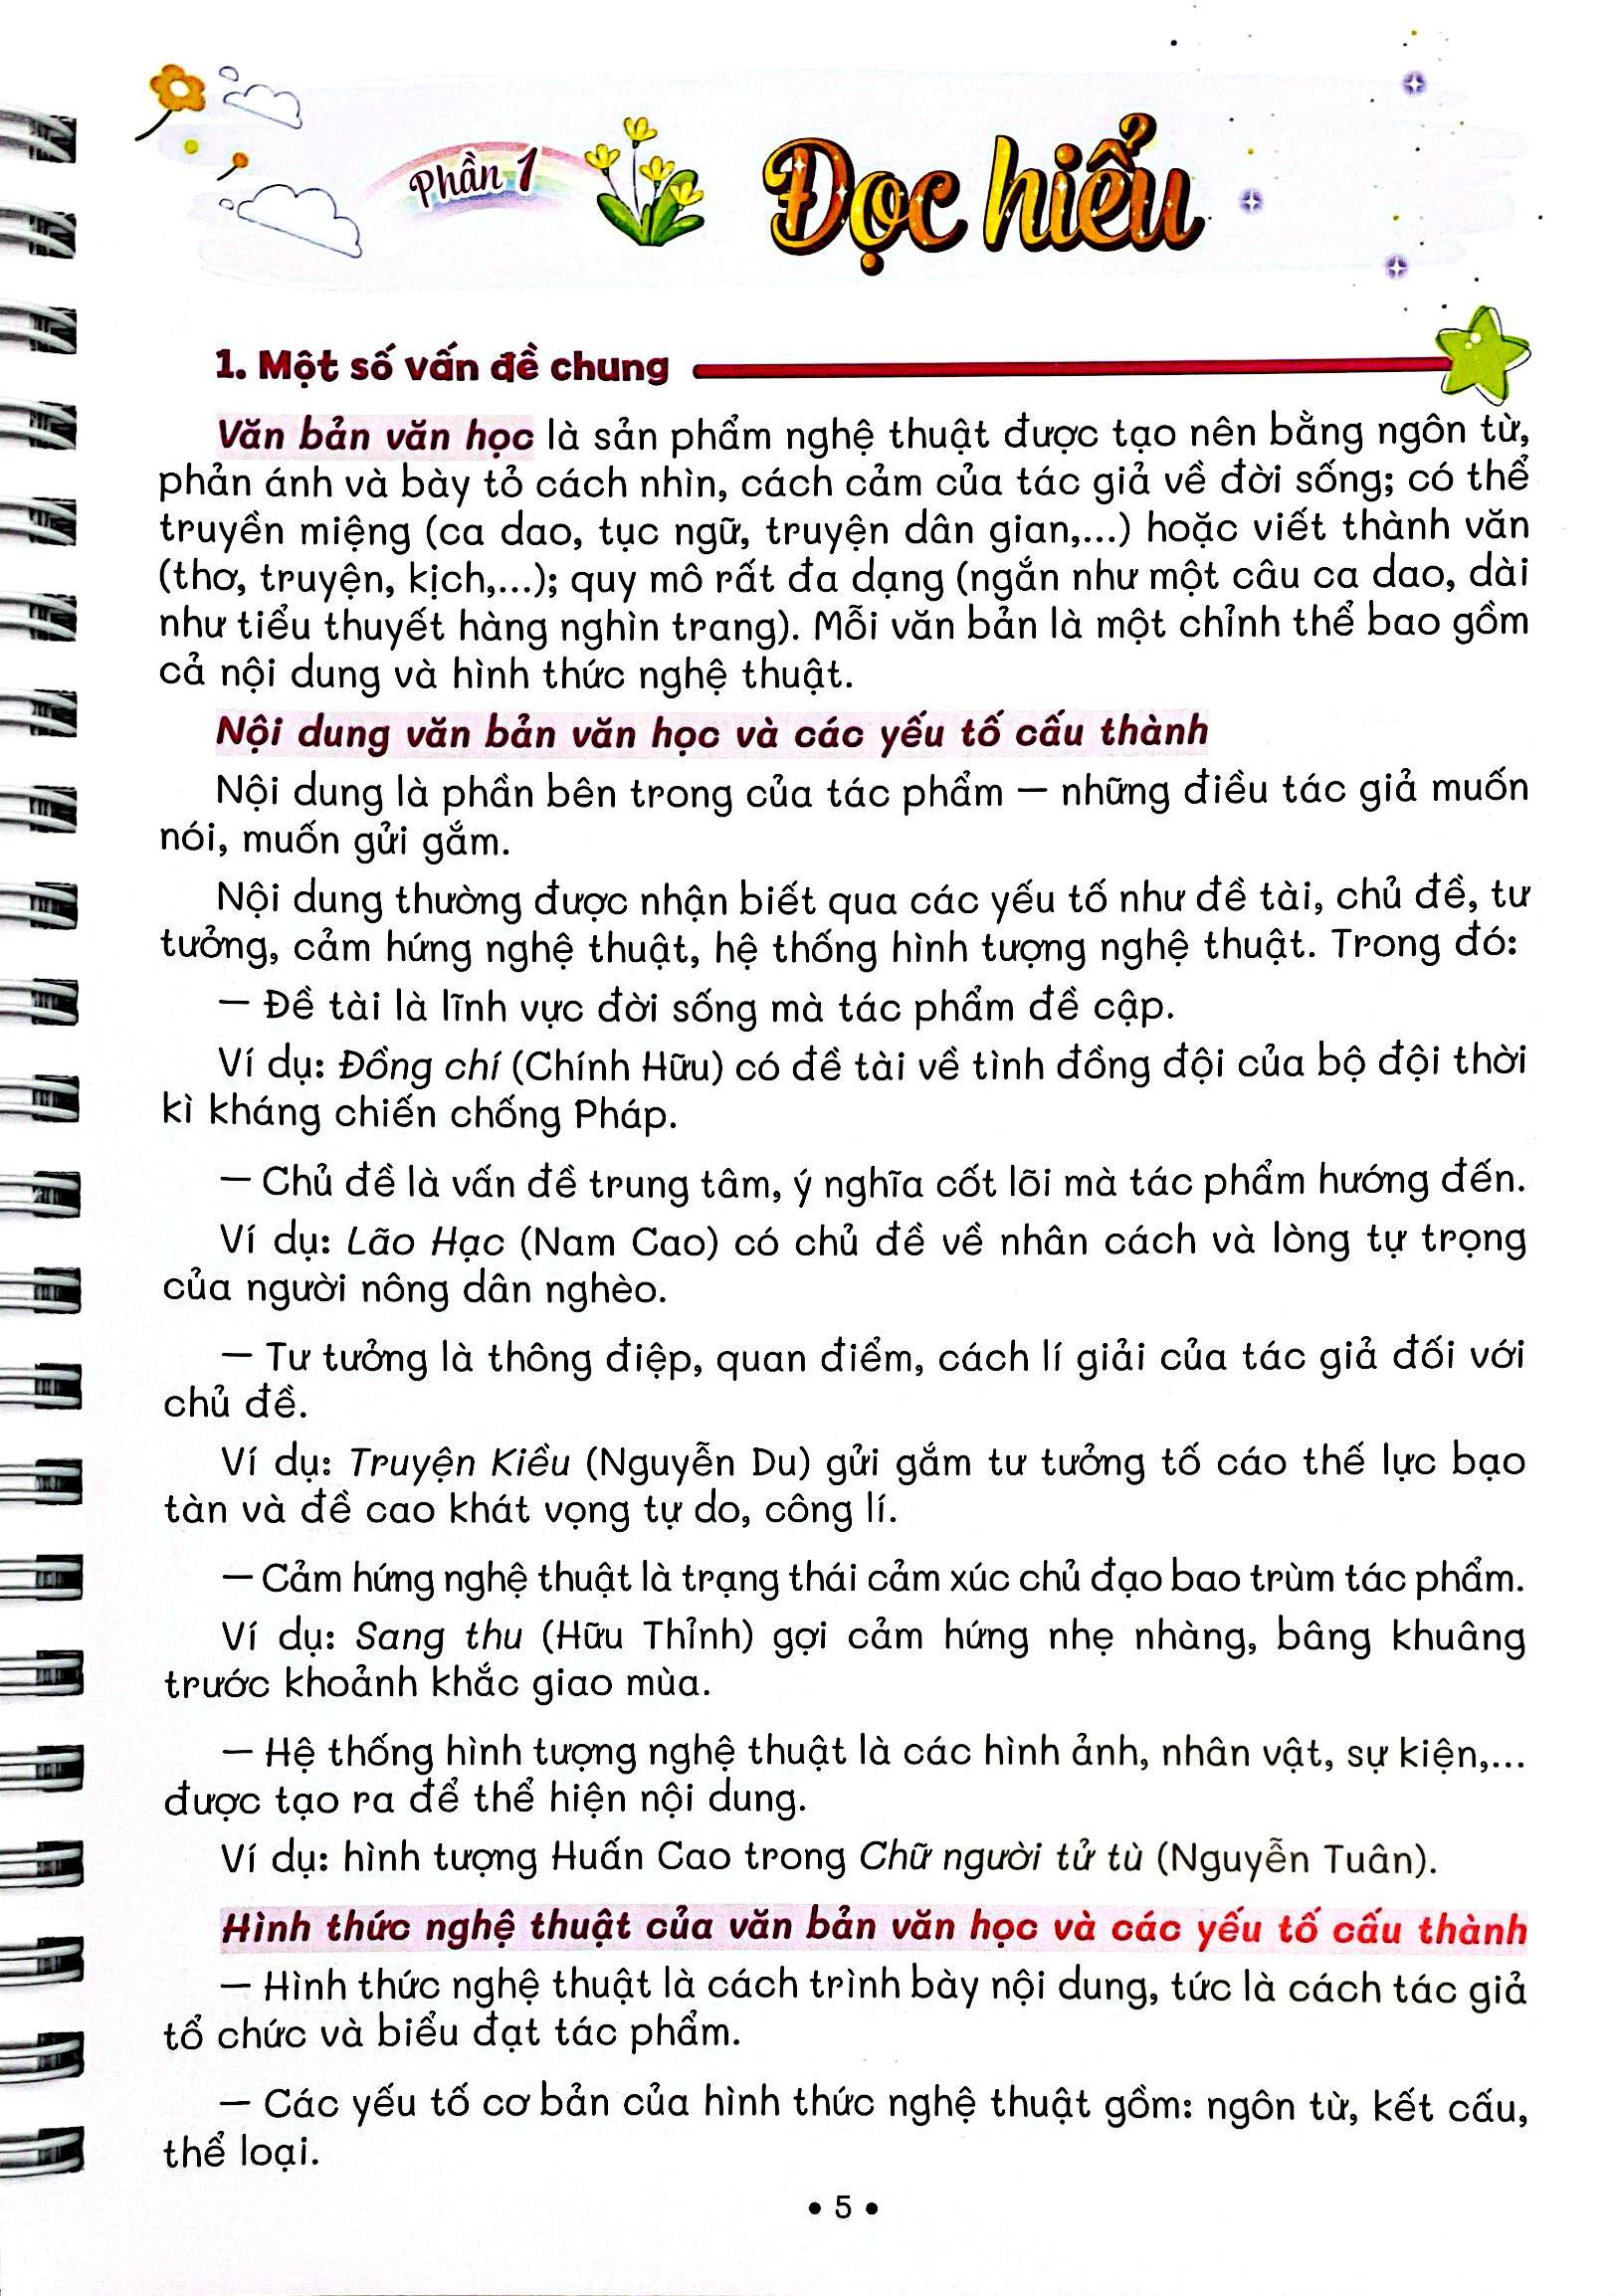 Phần 1
Đọc hiểu
1. Một số vấn đề chung
Văn bản văn học là sản phẩm nghệ thuật được tạo nên bằng ngôn từ,
phản ánh và bày tỏ cách nhìn, cách cảm của tác giả về đời sống; có thể
truyền miệng (ca dao, tục ngữ, truyện dân gian,...) hoặc viết thành văn
(thơ, truyện, kịch,...); quy mô rất đa dạng (ngắn như một câu ca dao, dài
như tiểu thuyết hàng nghìn trang). Mỗi văn bản là một chỉnh thể bao gồm
cả nội dung và hình thức nghệ thuật.
Nội dung văn bản văn học và các yếu tố cấu thành
Nội dung là phần bên trong của tác phẩm – những điều tác giả muốn
nói, muốn gửi gắm.
Nội dung thường được nhận biết qua các yếu tố như đề tài, chủ đề, tư
tưởng, cảm hứng nghệ thuật, hệ thống hình tượng nghệ thuật. Trong đó:
– Đề tài là lĩnh vực đời sống mà tác phẩm đề cập.
Ví dụ: Đồng chí (Chính Hữu) có đề tài về tình đồng đội của bộ đội thời
kì kháng chiến chống Pháp.
– Chủ đề là vấn đề trung tâm, ý nghĩa cốt lõi mà tác phẩm hướng đến.
Ví dụ: Lão Hạc (Nam Cao) có chủ đề về nhân cách và lòng tự trọng
của người nông dân nghèo.
– Tư tưởng là thông điệp, quan điểm, cách lí giải của tác giả đối với
chủ đề.
Ví dụ: Truyện Kiều (Nguyễn Du) gửi gắm tư tưởng tố cáo thế lực bạo
tàn và đề cao khát vọng tự do, công lí.
– Cảm hứng nghệ thuật là trạng thái cảm xúc chủ đạo bao trùm tác phẩm.
Ví dụ: Sang thu (Hữu Thỉnh) gợi cảm hứng nhẹ nhàng, bâng khuâng
trước khoảnh khắc giao mùa.
– Hệ thống hình tượng nghệ thuật là các hình ảnh, nhân vật, sự kiện,...
được tạo ra để thể hiện nội dung.
Ví dụ: hình tượng Huấn Cao trong Chữ người tử tù (Nguyễn Tuân).
Hình thức nghệ thuật của văn bản văn học và các yếu tố cấu thành
– Hình thức nghệ thuật là cách trình bày nội dung, tức là cách tác giả
tổ chức và biểu đạt tác phẩm.
– Các yếu tố cơ bản của hình thức nghệ thuật gồm: ngôn từ, kết cấu,
thể loại.
• 5 •